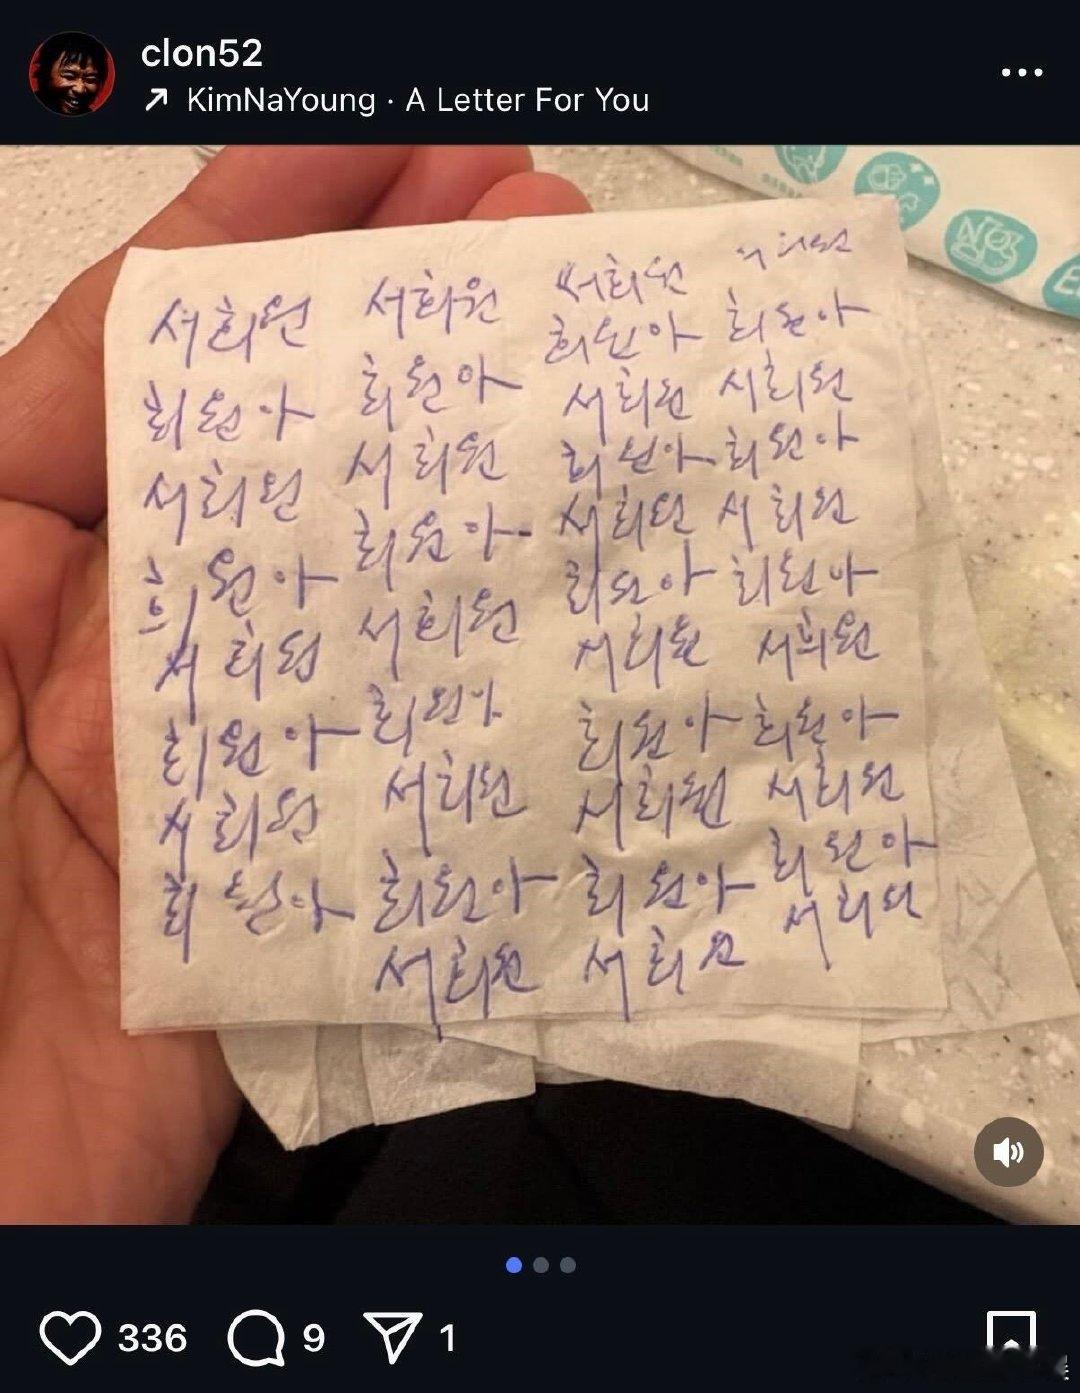 clon52
KimNaYoung · A Letter For You
서희원
희원아
서희원
희원아
서희원
희원아
서희원
희원아
서희원
희원아
서희원
희원아
서희원
희원아
서희원
희원아
서희원
서희원
희원아
서희원
희원아
서희원
희원아
서희원
희원아
서희원
희원아
서희원
서희원
희원아
서희원
희원아
서희원
희원아
서희원
희원아
서희원
희원아
서희원
336
9
1